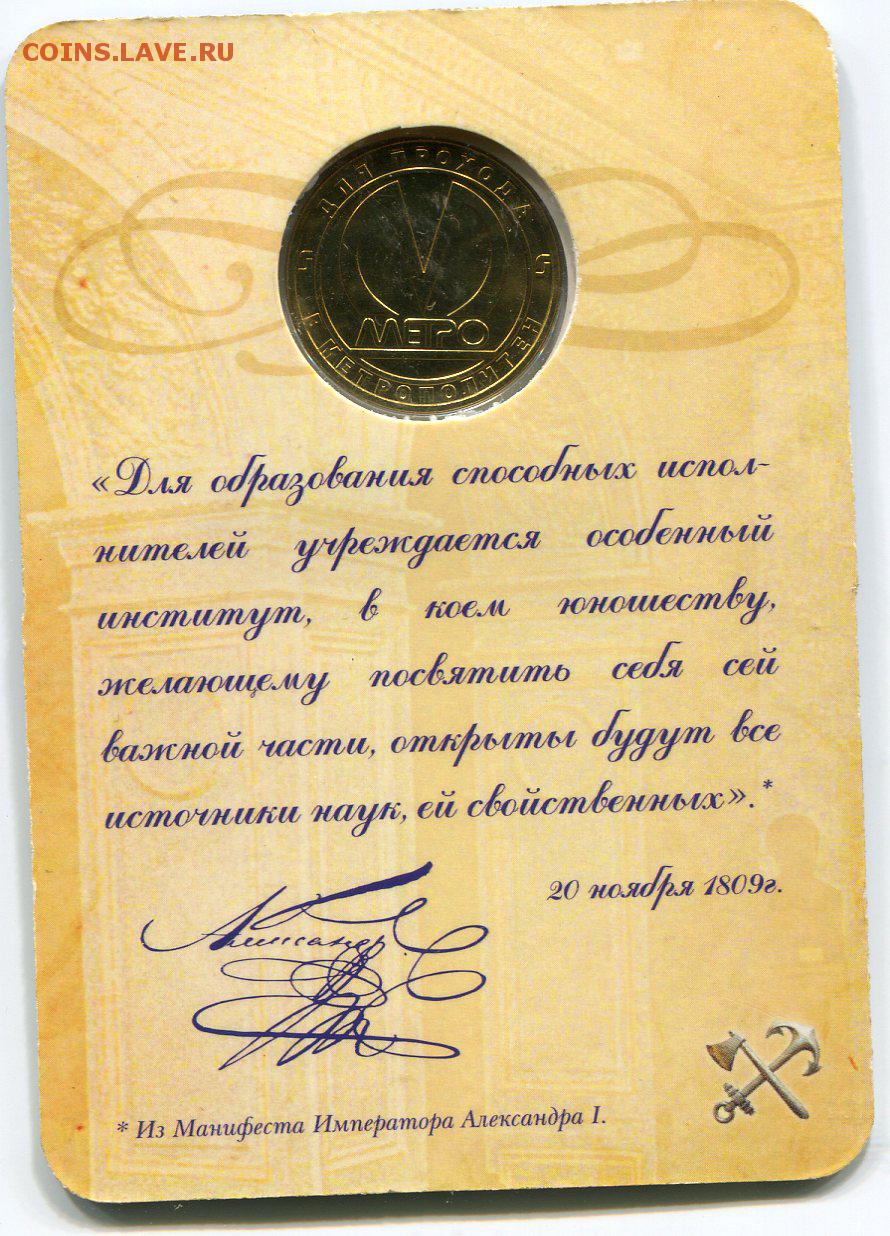 COINS.LAVE.RU
ДЛЯ ПРОХОДА
МЕТРО
В МЕТРОПОЛИТЕН
«Для образования способных испол-
нителей учреждается особенный
институт, в коем юношеству,
желающему посвятить себя сей
важной части, открыты будут все
источники наук, ей свойственных».*
20 ноября 1809г.
Александр
* Из Манифеста Императора Александра I.